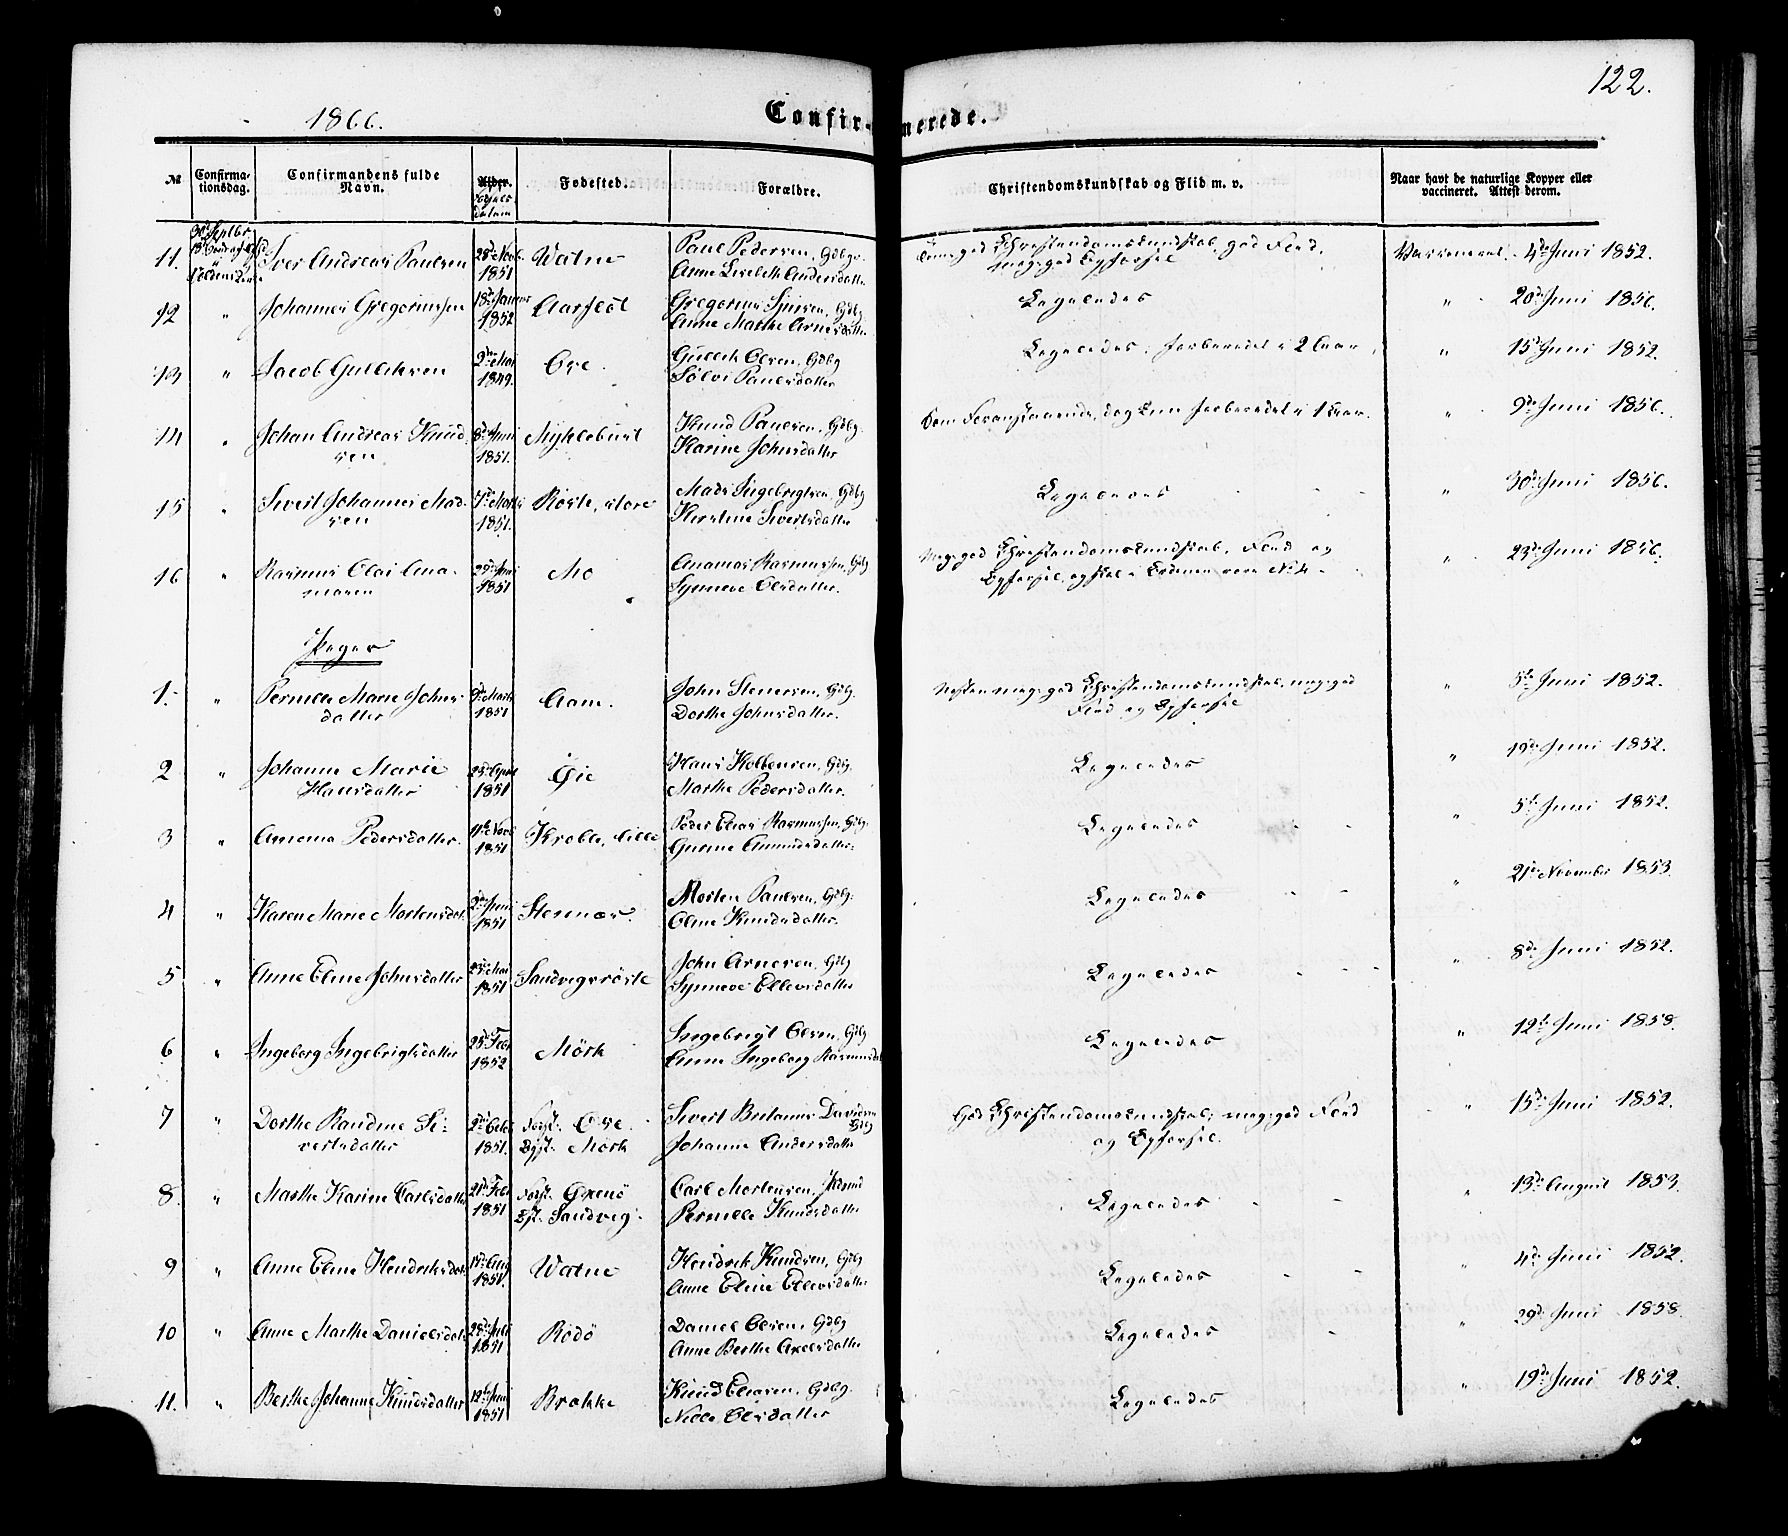 122.
1866.
Confirmerede.
№
Confirmationsdag.
Confirmandens fulde Navn.
Alder.
Fødselsdatum
Fødested.
Forældre.
Christendomskundskab og Flid m. v.
Naar havt de naturlige Kopper eller vaccineret. Attest derom.
11. Iver Andreas Paulsen 28de Novb. 1851 Watne Paul Pedersen, Gdbgr. Anne Lisbeth Andersdatter god Christendomskundskab, god Flid, meget god Opførsel Vaccineret. 4de Juni 1852.
12 " Johannes Gregoriussen 18de Januar 1852 Aarflot Gregorius Sjursen, Gdbg Anne Marthe Arnesdatter Ligeledes " 20de Juni 1856.
13 " Jacob Gulliksen 2den Mai 1849. Ose. Gullik Olsen, Gdbg Sølvi Paulsdatter Ligeledes, forberedet i 2 Aar. " 15de Juni 1852.
14 " Johan Andreas Knudsen 8de Juni 1851. Myklebust Knud Paulsen, Gdbg. Karine Johnsdatter Som Foranstaaende, dog kun forberedet i 1 Aar. " 9de Juni 1856.
15 " Sivert Johannes Madsen 7de Marts 1851. Röste, store Mads Ingebrigtsen, Gdbg Kirstine Sivertsdatter Ligeledes " 30de Juni 1856.
16 " Rasmus Olai Anamasen 29de Juni 1851 Mo Anamas Rasmussen, Gdbg Synneve Olsdatter. Meget god Christendomskundskab, Flid og Opførsel, og skal i Ordenen være No 4 " 23de Juni 1856.
Piger
1. " Pernille Marie Johnsdatter 9de Marts 1851 Aam. John Steversen, Gdbg. Dorthe Johnsdatter. Næsten meget god Christendomskundskab, meget god Flid og Opførsel " 5te Juni 1852.
2 " Johanne Marie Hansdatter 23de April 1851 Øie Hans Kolbensen, Gdbg. Marthe Pedersdatter. Ligeledes " 19de Juni 1852.
3 " Anoma Pedersdatter. 11te Novb 1851 Krobll, lille Peder Elias Rasmussen, Gdbg. Gurine Amundsdatter. Ligeledes " 5te Juni 1852.
4 " Karen Marie Mortensdat. 2den Juni 1851 Stennæs. Morten Paulsen, Gdbg. Oline Knudsdatter. Ligeledes " 21de November 1853.
5 " Anne Eline Johnsdatter 23de Mai 1851 Sandvigsröste John Arnesen, Gdbg Synneve Ellevsdatter Ligeledes " 8de Juni 1852.
6 " Ingeborg Ingebrigtsdatter 25de Febr 1852 Mörk Ingebrigt Olsen, Gdbg Anne Ingeborg Rasmusdat Ligeledes " 12te Juni 1858.
7 " Dorthe Randine Sivertsdatter 2den Octb 1851. Födt. Ose. Opf. Mörk Sivert Bertanus Davidsen Gdbg Johanne Andersdatter God Christendomskundskab; meget god Flid og Opførsel. " 15de Juni 1852.
8. " Marthe Karine Carlsdatter 21de Febr 1851 Födt. Grenö Opf. Sandvig. Carl Mortensen, Pernille Knudsdatter Ligeledes " 13de August 1853.
9 " Anne Eline Hendriksdat. 15de Aug 1851. Watne Hendrik Knudsen, Gdbg Anne Eline Ellevsdatter Ligeledes " 4de Juni 1852.
10 " Anne Marthe Danielsdat. 28de Juli 1851 Rödö Daniel Olsen, Gdbg Anne Berthe Axelsdatter Ligeledes " 29de Juni 1858.
11. " Berthe Johanne Knudsdatter 12te Juni 1851 Brokke Knud Eliasen, Gdbg. Nille Olsdatter Ligeledes " 19de Juni 1852.